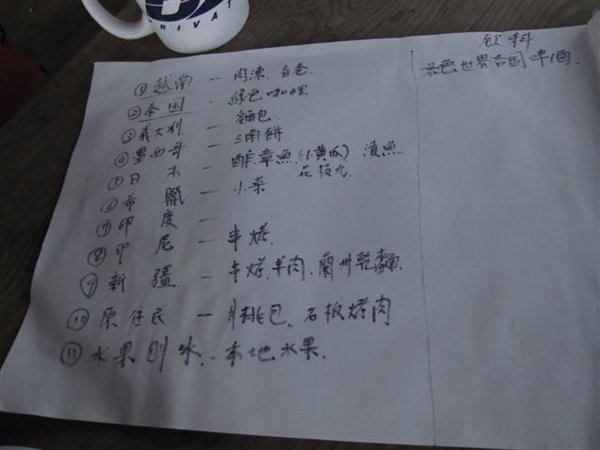 RIVAT
飲料
各色世界各国啤酒.
① 越南 — 肉凍、
② 泰国 — 綠色咖哩
③ 義大利 — 麵包
④ 墨西哥 — 三角餅
⑤ 日本 — 醋章魚(小黃瓜) 漬魚
花枝丸
⑥ 希臘 — 小菜
⑦ 印度 —
⑧ 印尼 — 串烤
⑨ 新疆 — 串烤.羊肉.蘭州乾麵.
⑩ 原住民 — 月桃包、石板烤肉
⑪ 水果刨冰..本地水果.